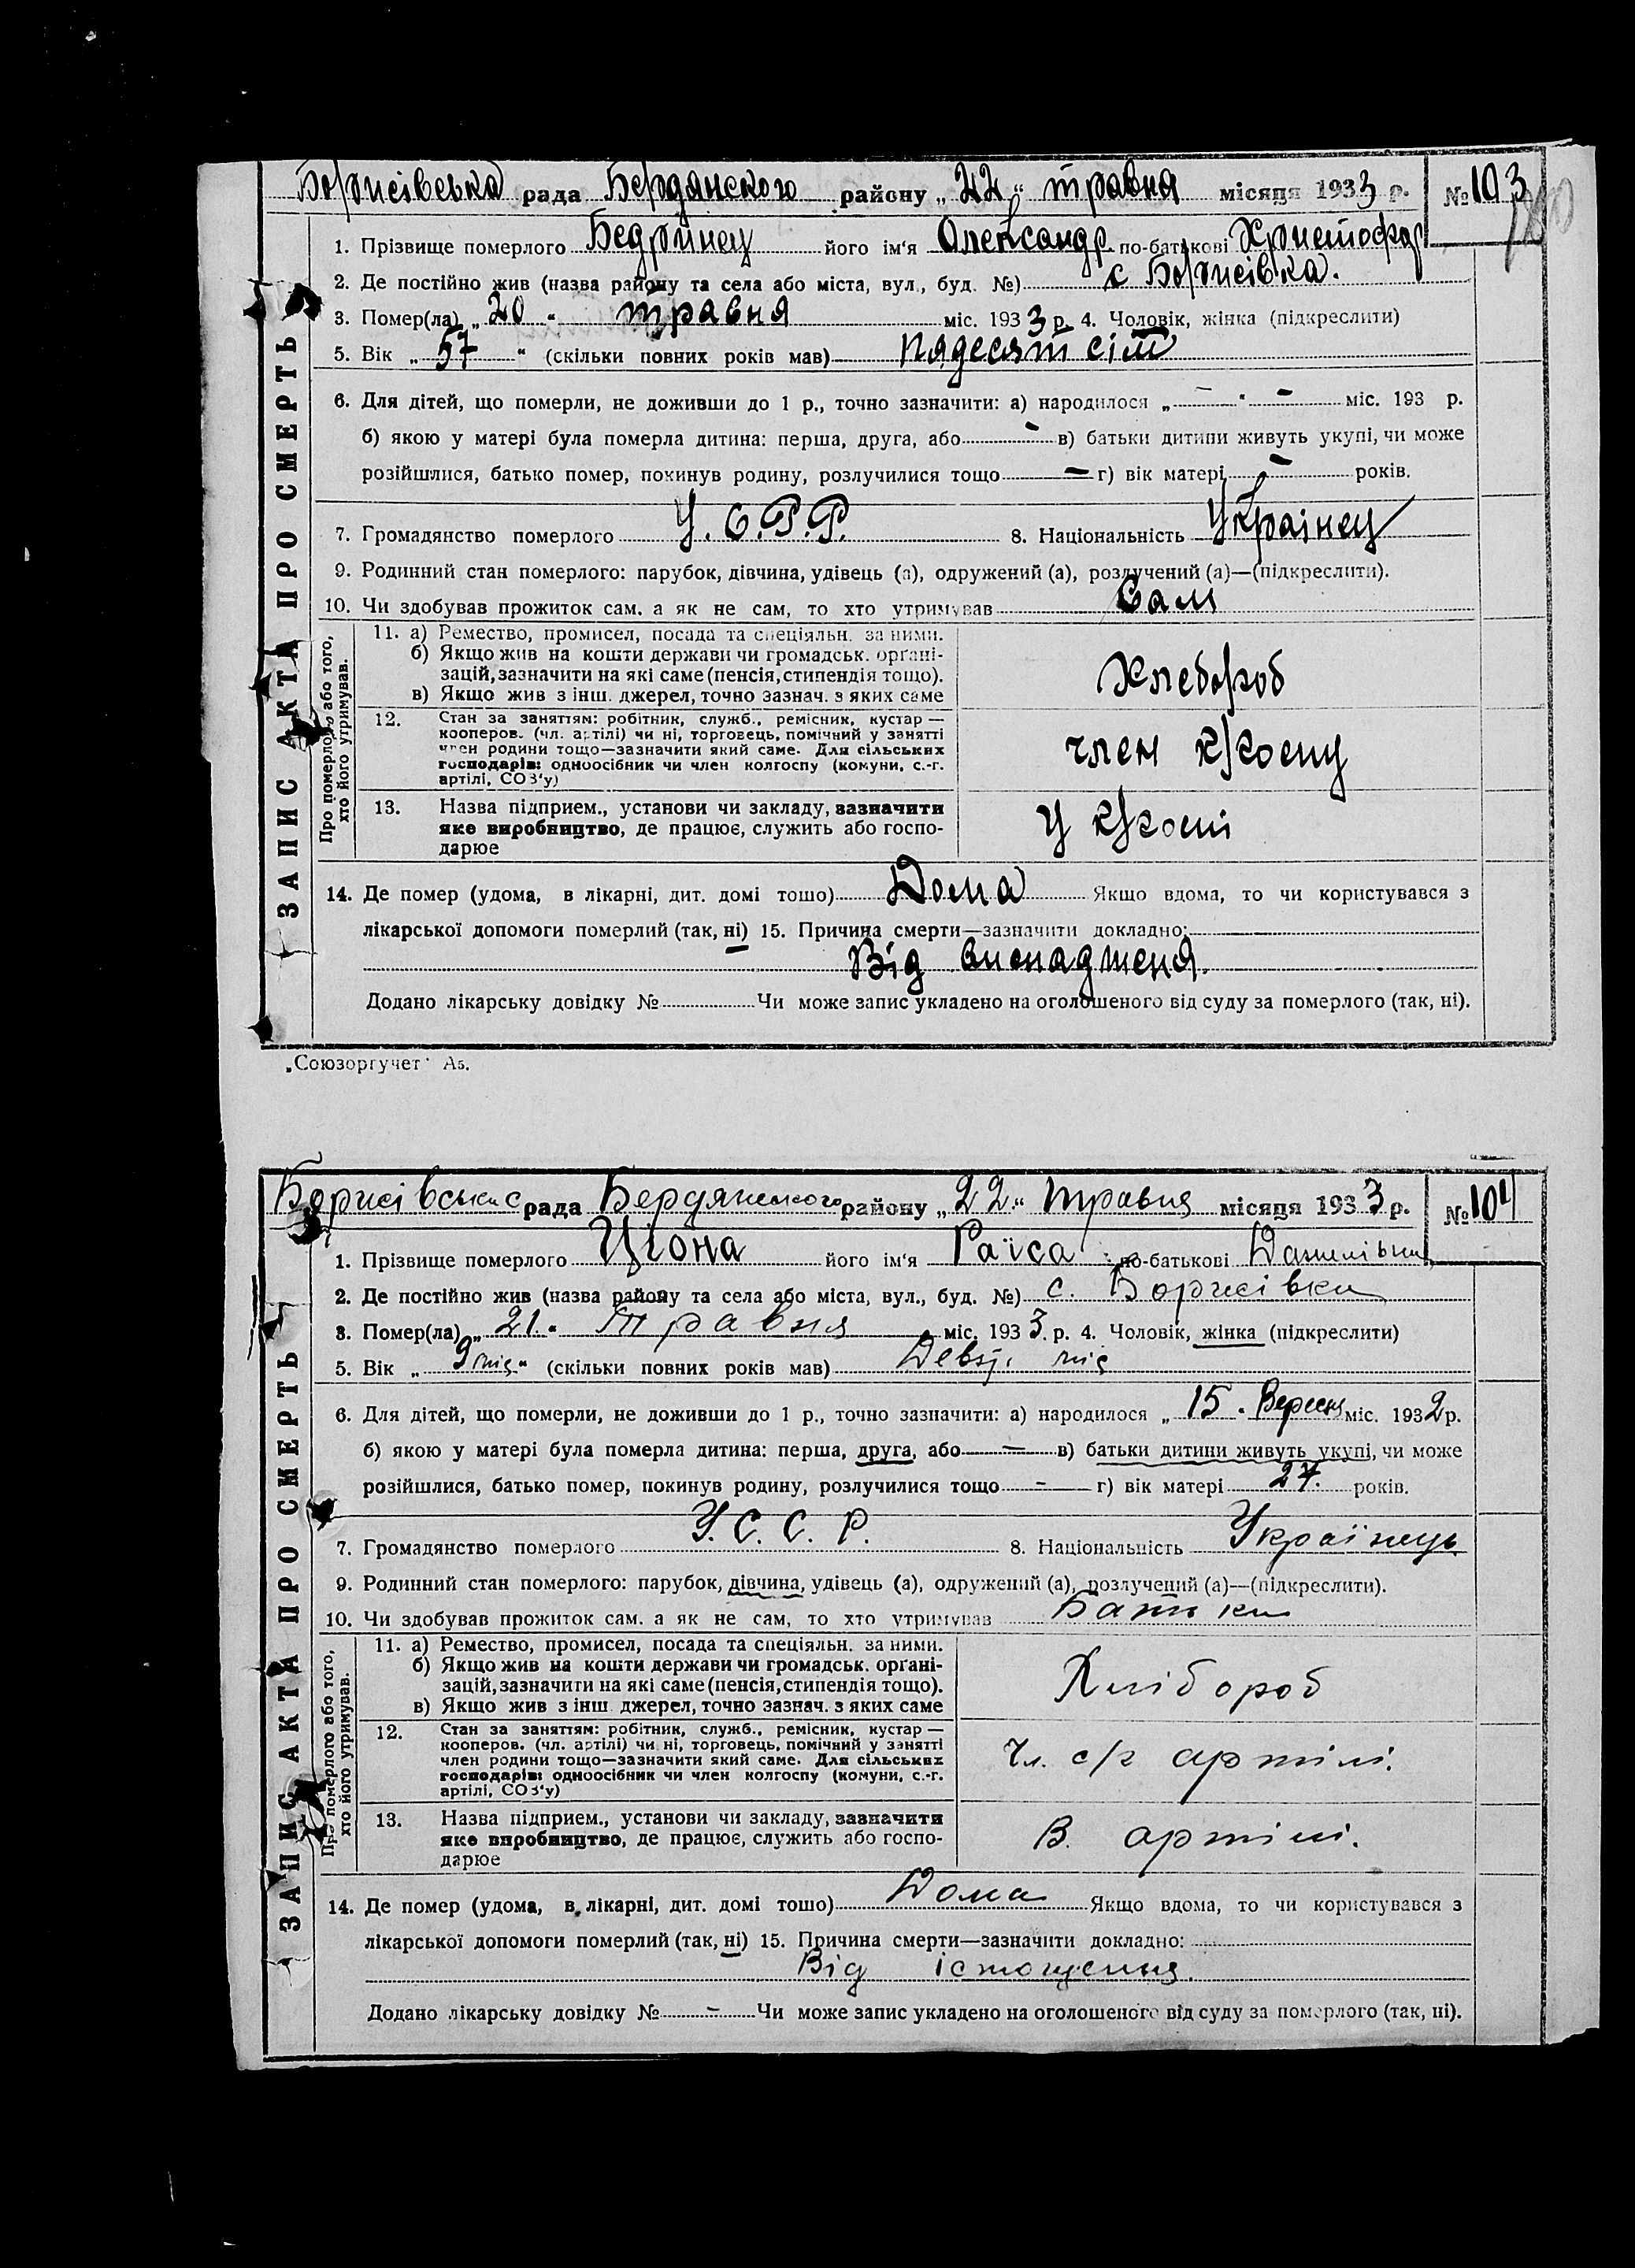 Борисівська рада Бердянского району „22“ травня місяця 1933 р. №103
1. Прізвище померлого Бедринец його ім‘я Олександр по-батькові Христофор
2. Де постійно жив (назва району та села або міста, вул., буд. №) с Борисівка.
3. Помер(ла) „20“ травня міс. 1933 р. 4. Чоловік, жінка (підкреслити)
5. Вік „57“ (скільки повних років мав) пядесят сім
6. Для дітей, що померли, не доживши до 1 р., точно зазначити: а) народилося „—“ — міс. 193 р.
б) якою у матері була померла дитина: перша, друга, або — в) батьки дитини живуть укупі, чи може
розійшлися, батько помер, покинув родину, розлучилися тощо — г) вік матері — років.
7. Громадянство померлого У.С.Р.Р. 8. Національність Украінец
9. Родинний стан померлого: парубок, дівчина, удівець (а), одружений (а), розлучений (а)—(підкреслити).
10. Чи здобував прожиток сам. а як не сам, то хто утримував Сам
11. а) Ремество, промисел, посада та спеціяльн. за ними.
б) Якщо жив на кошти держави чи громадськ. орґані-
зацій, зазначити на які саме (пенсія, стипендія тощо).
в) Якщо жив з інш. джерел, точно зазнач. з яких саме
Хлебороб
12. Стан за заняттям: робітник, служб., ремісник, кустар —
кооперов. (чл. артілі) чи ні, торговець, помічний у занятті
член родини тощо—зазначити який саме. Для сільських
господарів: одноосібник чи член колгоспу (комуни, с.-г.
артілі, СОЗ‘у)
член к/госпу
13. Назва підприєм., установи чи закладу, зазначити
яке виробництво, де працює, служить або госпо-
дарює
у к/госпі
14. Де помер (удома, в лікарні, дит. домі тошо) Дома Якщо вдома, то чи користувався з
лікарської допомоги померлий (так, ні) 15. Причина смерти—зазначити докладно:
Від виснадженя.
Додано лікарську довідку № Чи може запис укладено на оголошеного від суду за померлого (так, ні).
ЗАПИС АКТА ПРО СМЕРТЬ
Про померлого або того,
хто його утримував.
„Союзоргучет“ А5.
Борисівська рада Бердянського району „22“ травня місяця 1933 р. №104
1. Прізвище померлого Ціона його ім‘я Раїса по-батькові Данилівна
2. Де постійно жив (назва району та села або міста, вул., буд. №) с. Борисівки
3. Помер(ла) „21“ травня міс. 1933 р. 4. Чоловік, жінка (підкреслити)
5. Вік „9 міс“ (скільки повних років мав) Девят. міс
6. Для дітей, що померли, не доживши до 1 р., точно зазначити: а) народилося „15“ Вересня міс. 1932 р.
б) якою у матері була померла дитина: перша, друга, або — в) батьки дитини живуть укупі, чи може
розійшлися, батько помер, покинув родину, розлучилися тощо - г) вік матері 27. років.
7. Громадянство померлого У.С.С.Р. 8. Національність Українець
9. Родинний стан померлого: парубок, дівчина, удівець (а), одружений (а), розлучений (а)—(підкреслити).
10. Чи здобував прожиток сам. а як не сам, то хто утримував Батьки
11. а) Ремество, промисел, посада та спеціяльн. за ними.
б) Якщо жив на кошти держави чи громадськ. орґані-
зацій, зазначити на які саме (пенсія, стипендія тощо).
в) Якщо жив з інш джерел, точно зазнач. з яких саме
Хлібороб
12. Стан за заняттям: робітник, служб., ремісник, кустар —
кооперов. (чл. артілі) чи ні, торговець, помічний у занятті
член родини тощо—зазначити який саме. Для сільських
господарів: одноосібник чи член колгоспу (комуни, с.-г.
артілі, СОЗ‘у)
Чл. с/г артілі.
13. Назва підприєм., установи чи закладу, зазначити
яке виробництво, де працює, служить або госпо-
дарює
В. артілі.
14. Де помер (удома, в лікарні, дит. домі тошо) Дома Якщо вдома, то чи користувався з
лікарської допомоги померлий (так, ні) 15. Причина смерти—зазначити докладно:
Від істощения.
Додано лікарську довідку № — Чи може запис укладено на оголошеного від суду за померлого (так, ні).
ЗАПИС АКТА ПРО СМЕРТЬ
Про померлого або того,
хто його утримував.